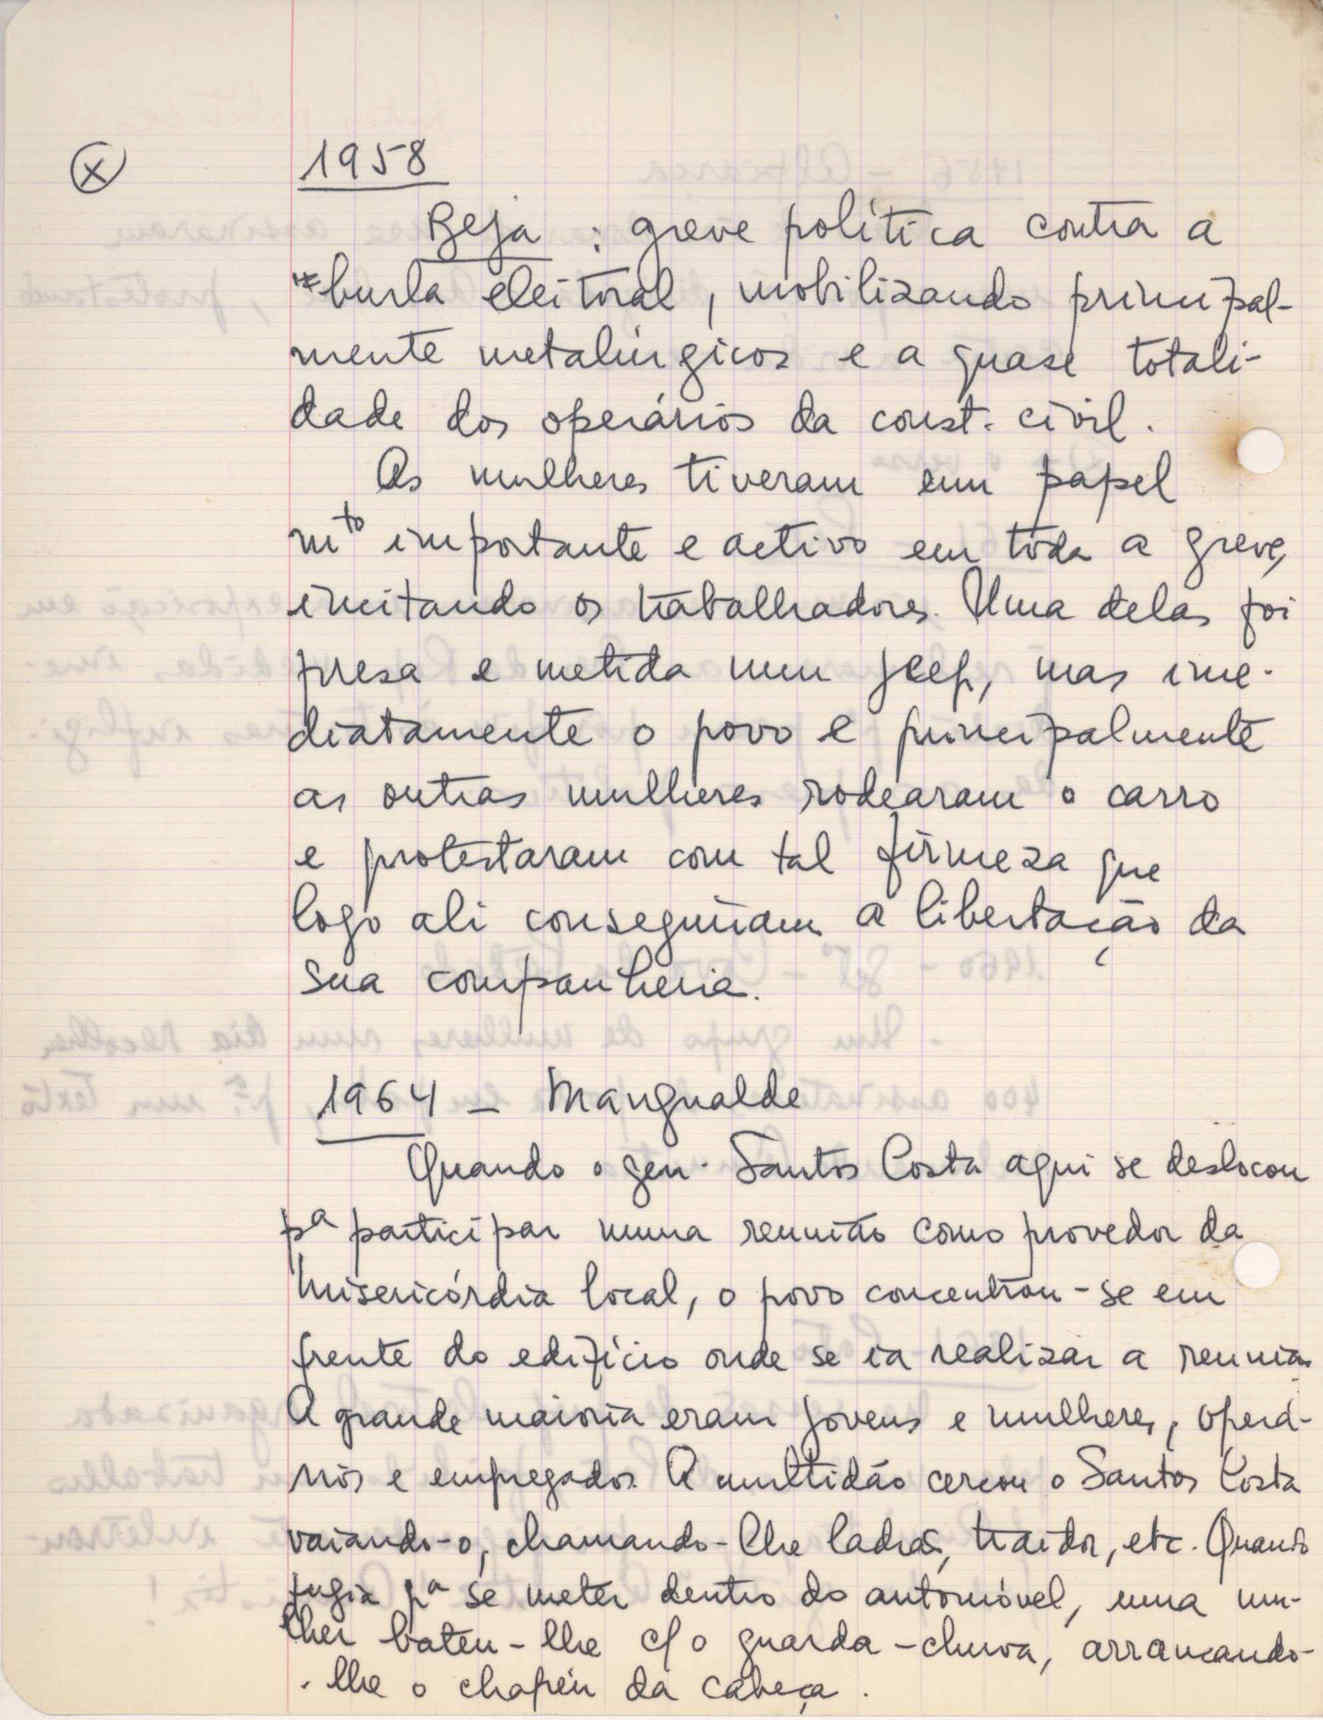 (x) 1958
Beja : greve política contra a
burla eleitoral, mobilizando principal-
mente metalúrgicos e a quase totali-
dade dos operários da const. civil.
As mulheres tiveram um papel
mto importante e activo em toda a greve,
incitando os trabalhadores. Uma delas foi
presa e metida num jeep, mas ime-
diatamente o povo e principalmente
as outras mulheres rodearam o carro
e protestaram com tal firmeza que
logo ali conseguiram a libertação da
sua companheira.
1964 - Mangualde
Quando o gen. Santos Costa aqui se deslocou
pa participar numa reunião como provedor da
Misericórdia local, o povo concentrou-se em
frente do edifício onde se ia realizar a reunião
A grande maioria eram jovens e mulheres, operá-
rios e empregados. A multidão cercou o Santos Costa
vaiando-o, chamando-lhe ladrão, traidor, etc. Quando
fugia pa se meter dentro do automóvel, uma mu-
lher bateu-lhe c/ o guarda-chuva, arrancando-
-lhe o chapéu da cabeça.